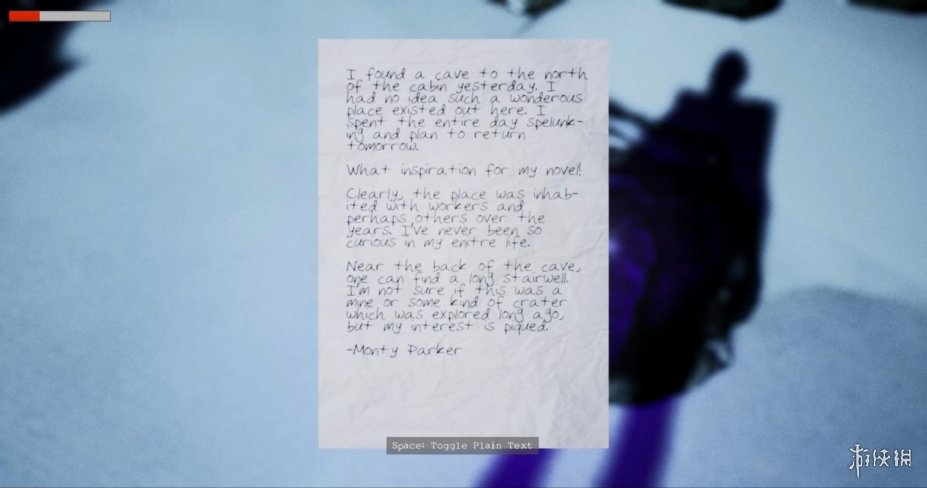 I found a cave to the north
of the cabin yesterday. I
had no idea such a wonderous
place existed out here. I
spent the entire day spelunk-
ing and plan to return
tomorrow.
What inspiration for my novel!
Clearly, the place was inhab-
ited with workers and
perhaps others over the
years. I've never been so
curious in my enitre life.
Near the back of the cave,
one can find a long stairwell.
I'm not sure if this was a
mine or some kind of crater
which was explored long ago,
but my interest is piqued.
-Monty Parker
Space: Toggle Plain Text
游侠網